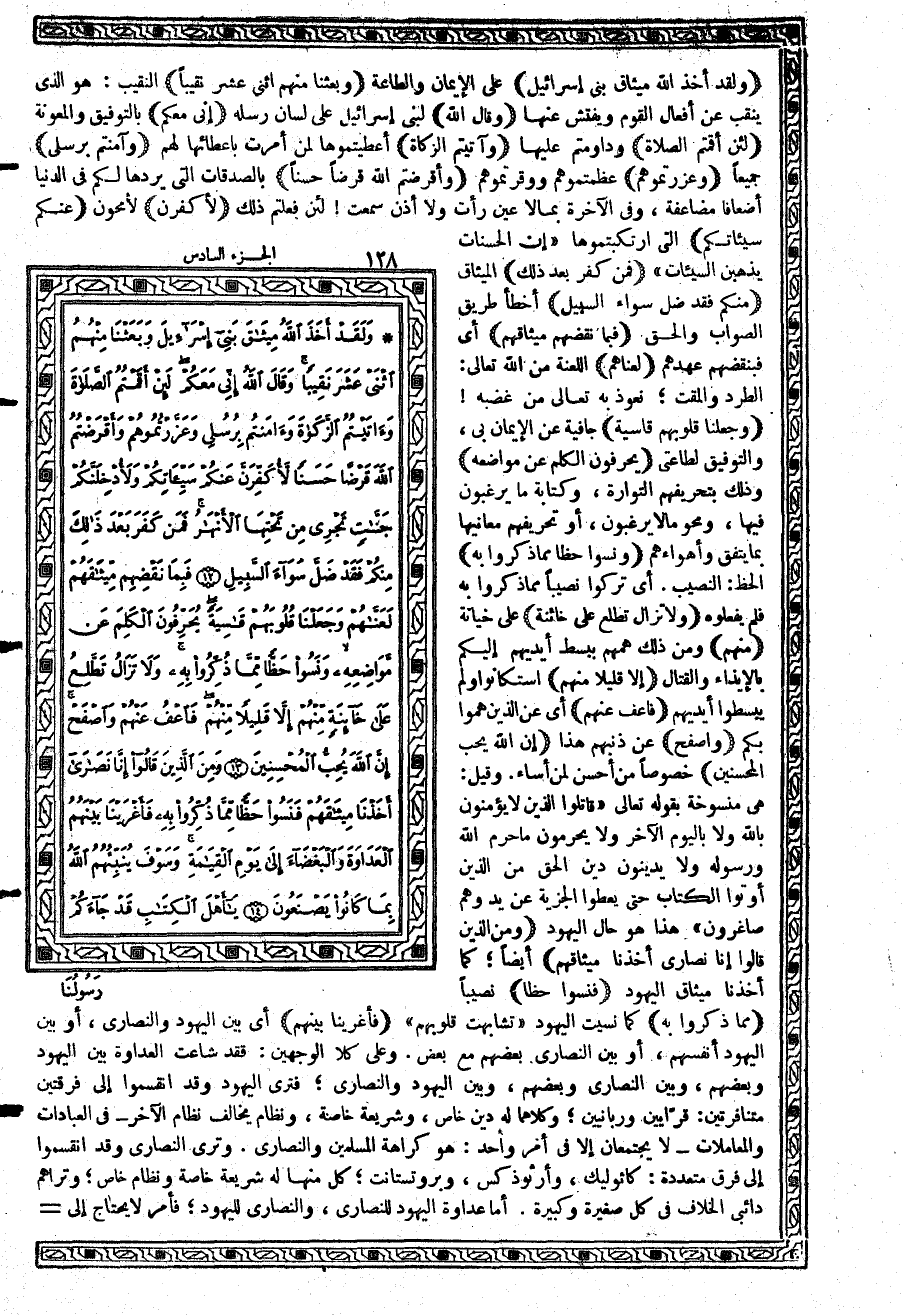 ﴿ولقد أخذ الله ميثاق بنى إسرائيل﴾ على الإيمان والطاعة ﴿وبعثنا منهم اثنى عشر نقيباً﴾ النقيب : هو الذى
ينقب عن أفعال القوم ويفتش عنها ﴿وقال الله﴾ لبنى إسرائيل على لسان رسله ﴿إنى معكم﴾ بالتوفيق والمعونة
﴿لئن أقمتم الصلاة﴾ وداومتم عليها ﴿وآتيتم الزكاة﴾ أعطيتموها لمن أمرت باعطائها لهم ﴿وآمنتم برسلى﴾
جميعاً ﴿وعزرتموهم﴾ عظمتموهم ووقرتموهم ﴿وأقرضتم الله قرضاً حسناً﴾ بالصدقات التى يردها لكم فى الدنيا
أضعافا مضاعفة ، وفى الآخرة بمالا عين رأت ولا أذن سمعت ! لئن فعلتم ذلك ﴿لأكفرن﴾ لأمحون ﴿عنكم
سيئاتكم﴾ التى ارتكبتموها «إن الحسنات
يذهبن السيئات» ﴿فمن كفر بعد ذلك﴾ الميثاق
﴿منكم فقد ضل سواء السبيل﴾ أخطأ طريق
الصواب والحق ﴿فبما نقضهم ميثاقهم﴾ أى
فبنقضهم عهدهم ﴿لعناهم﴾ اللعنة من الله تعالى:
الطرد والمقت ؛ نعوذ به تعالى من غضبه !
﴿وجعلنا قلوبهم قاسية﴾ جافية عن الإيمان بى ،
والتوفيق لطاعتى ﴿يحرفون الكلم عن مواضعه﴾
وذلك بتحريفهم التوارة ، وكتابة ما يرغبون
فيها ، ومحو مالايرغبون ، أو تحريفهم معانيها
بمايتفق وأهواءهم ﴿ونسوا حظا مماذكروا به﴾
الحظ: النصيب . أى تركوا نصيباً مماذكروا به
فلم يفعلوه ﴿ولاتزال تطلع على خائنة﴾ على خيانة
﴿منهم﴾ ومن ذلك همهم ببسط أيديهم إليكم
بالإيذاء والقتال ﴿إلا قليلا منهم﴾ استكانوا ولم
يبسطوا أيديهم ﴿فاعف عنهم﴾ أى عن الذين هموا
بكم ﴿واصفح﴾ عن ذنبهم هذا ﴿إن الله يحب
المحسنين﴾ خصوصاً من أحسن لمن أساء. وقيل:
هى منسوخة بقوله تعالى «قاتلوا الذين لايؤمنون
بالله ولا باليوم الآخر ولا يحرمون ماحرم الله
ورسوله ولا يدينون دين الحق من الذين
أوتوا الكتاب حتى يعطوا الجزية عن يد وهم
صاغرون» هذا هو حال اليهود ﴿ومن الذين
قالوا إنا نصارى أخذنا ميثاقهم﴾ أيضاً ؛ كما
أخذنا ميثاق اليهود ﴿فنسوا حظا﴾ نصيباً
الجزء السادس ١٢٨
* وَلَقَدْ أَخَذَ ٱللَّهُ مِيثَٰقَ بَنِىٓ إِسْرَٰٓءِيلَ وَبَعَثْنَا مِنْهُمُ
ٱثْنَىْ عَشَرَ نَقِيبًا ۖ وَقَالَ ٱللَّهُ إِنِّى مَعَكُمْ ۖ لَئِنْ أَقَمْتُمُ ٱلصَّلَوٰةَ
وَءَاتَيْتُمُ ٱلزَّكَوٰةَ وَءَامَنتُم بِرُسُلِى وَعَزَّرْتُمُوهُمْ وَأَقْرَضْتُمُ
ٱللَّهَ قَرْضًا حَسَنًا لَّأُكَفِّرَنَّ عَنكُمْ سَيِّـَٔاتِكُمْ وَلَأُدْخِلَنَّكُمْ
جَنَّٰتٍ تَجْرِى مِن تَحْتِهَا ٱلْأَنْهَٰرُ ۚ فَمَن كَفَرَ بَعْدَ ذَٰلِكَ
مِنكُمْ فَقَدْ ضَلَّ سَوَآءَ ٱلسَّبِيلِ ⑫ فَبِمَا نَقْضِهِم مِّيثَٰقَهُمْ
لَعَنَّٰهُمْ وَجَعَلْنَا قُلُوبَهُمْ قَٰسِيَةً ۖ يُحَرِّفُونَ ٱلْكَلِمَ عَن
مَّوَاضِعِهِۦ ۙ وَنَسُوا۟ حَظًّا مِّمَّا ذُكِّرُوا۟ بِهِۦ ۚ وَلَا تَزَالُ تَطَّلِعُ
عَلَىٰ خَآئِنَةٍ مِّنْهُمْ إِلَّا قَلِيلًا مِّنْهُمْ ۖ فَٱعْفُ عَنْهُمْ وَٱصْفَحْ ۚ
إِنَّ ٱللَّهَ يُحِبُّ ٱلْمُحْسِنِينَ ⑬ وَمِنَ ٱلَّذِينَ قَالُوٓا۟ إِنَّا نَصَٰرَىٰٓ
أَخَذْنَا مِيثَٰقَهُمْ فَنَسُوا۟ حَظًّا مِّمَّا ذُكِّرُوا۟ بِهِۦ فَأَغْرَيْنَا بَيْنَهُمُ
ٱلْعَدَاوَةَ وَٱلْبَغْضَآءَ إِلَىٰ يَوْمِ ٱلْقِيَٰمَةِ ۚ وَسَوْفَ يُنَبِّئُهُمُ ٱللَّهُ
بِمَا كَانُوا۟ يَصْنَعُونَ ⑭ يَٰٓأَهْلَ ٱلْكِتَٰبِ قَدْ جَآءَكُمْ
رَسُولُنَا
﴿مما ذكروا به﴾ كما نسيت اليهود «تشابهت قلوبهم» ﴿فأغرينا بينهم﴾ أى بين اليهود والنصارى ، أو بين
اليهود أنفسهم ، أو بين النصارى بعضهم مع بعض . وعلى كلا الوجهين : فقد شاعت العداوة بين اليهود
وبعضهم ، وبين النصارى وبعضهم ، وبين اليهود والنصارى ؛ فترى اليهود وقد انقسموا إلى فرقتين
متنافرتين: قرّايين وربانيين ؛ وكلاهما له دين خاص ، وشريعة خاصة ، ونظام يخالف نظام الآخر ــ فى العبادات
والمعاملات ــ لا يجتمعان إلا فى أمر واحد : هو كراهة المسلمين والنصارى . وترى النصارى وقد انقسموا
إلى فرق متعددة : كاثوليك ، وأرثوذكس ، وبروتستانت ؛ كل منها له شريعة خاصة ونظام خاص ؛ وتراهم
دائبى الخلاف فى كل صغيرة وكبيرة . أما عداوة اليهود للنصارى ، والنصارى لليهود ؛ فأمر لايحتاج إلى =